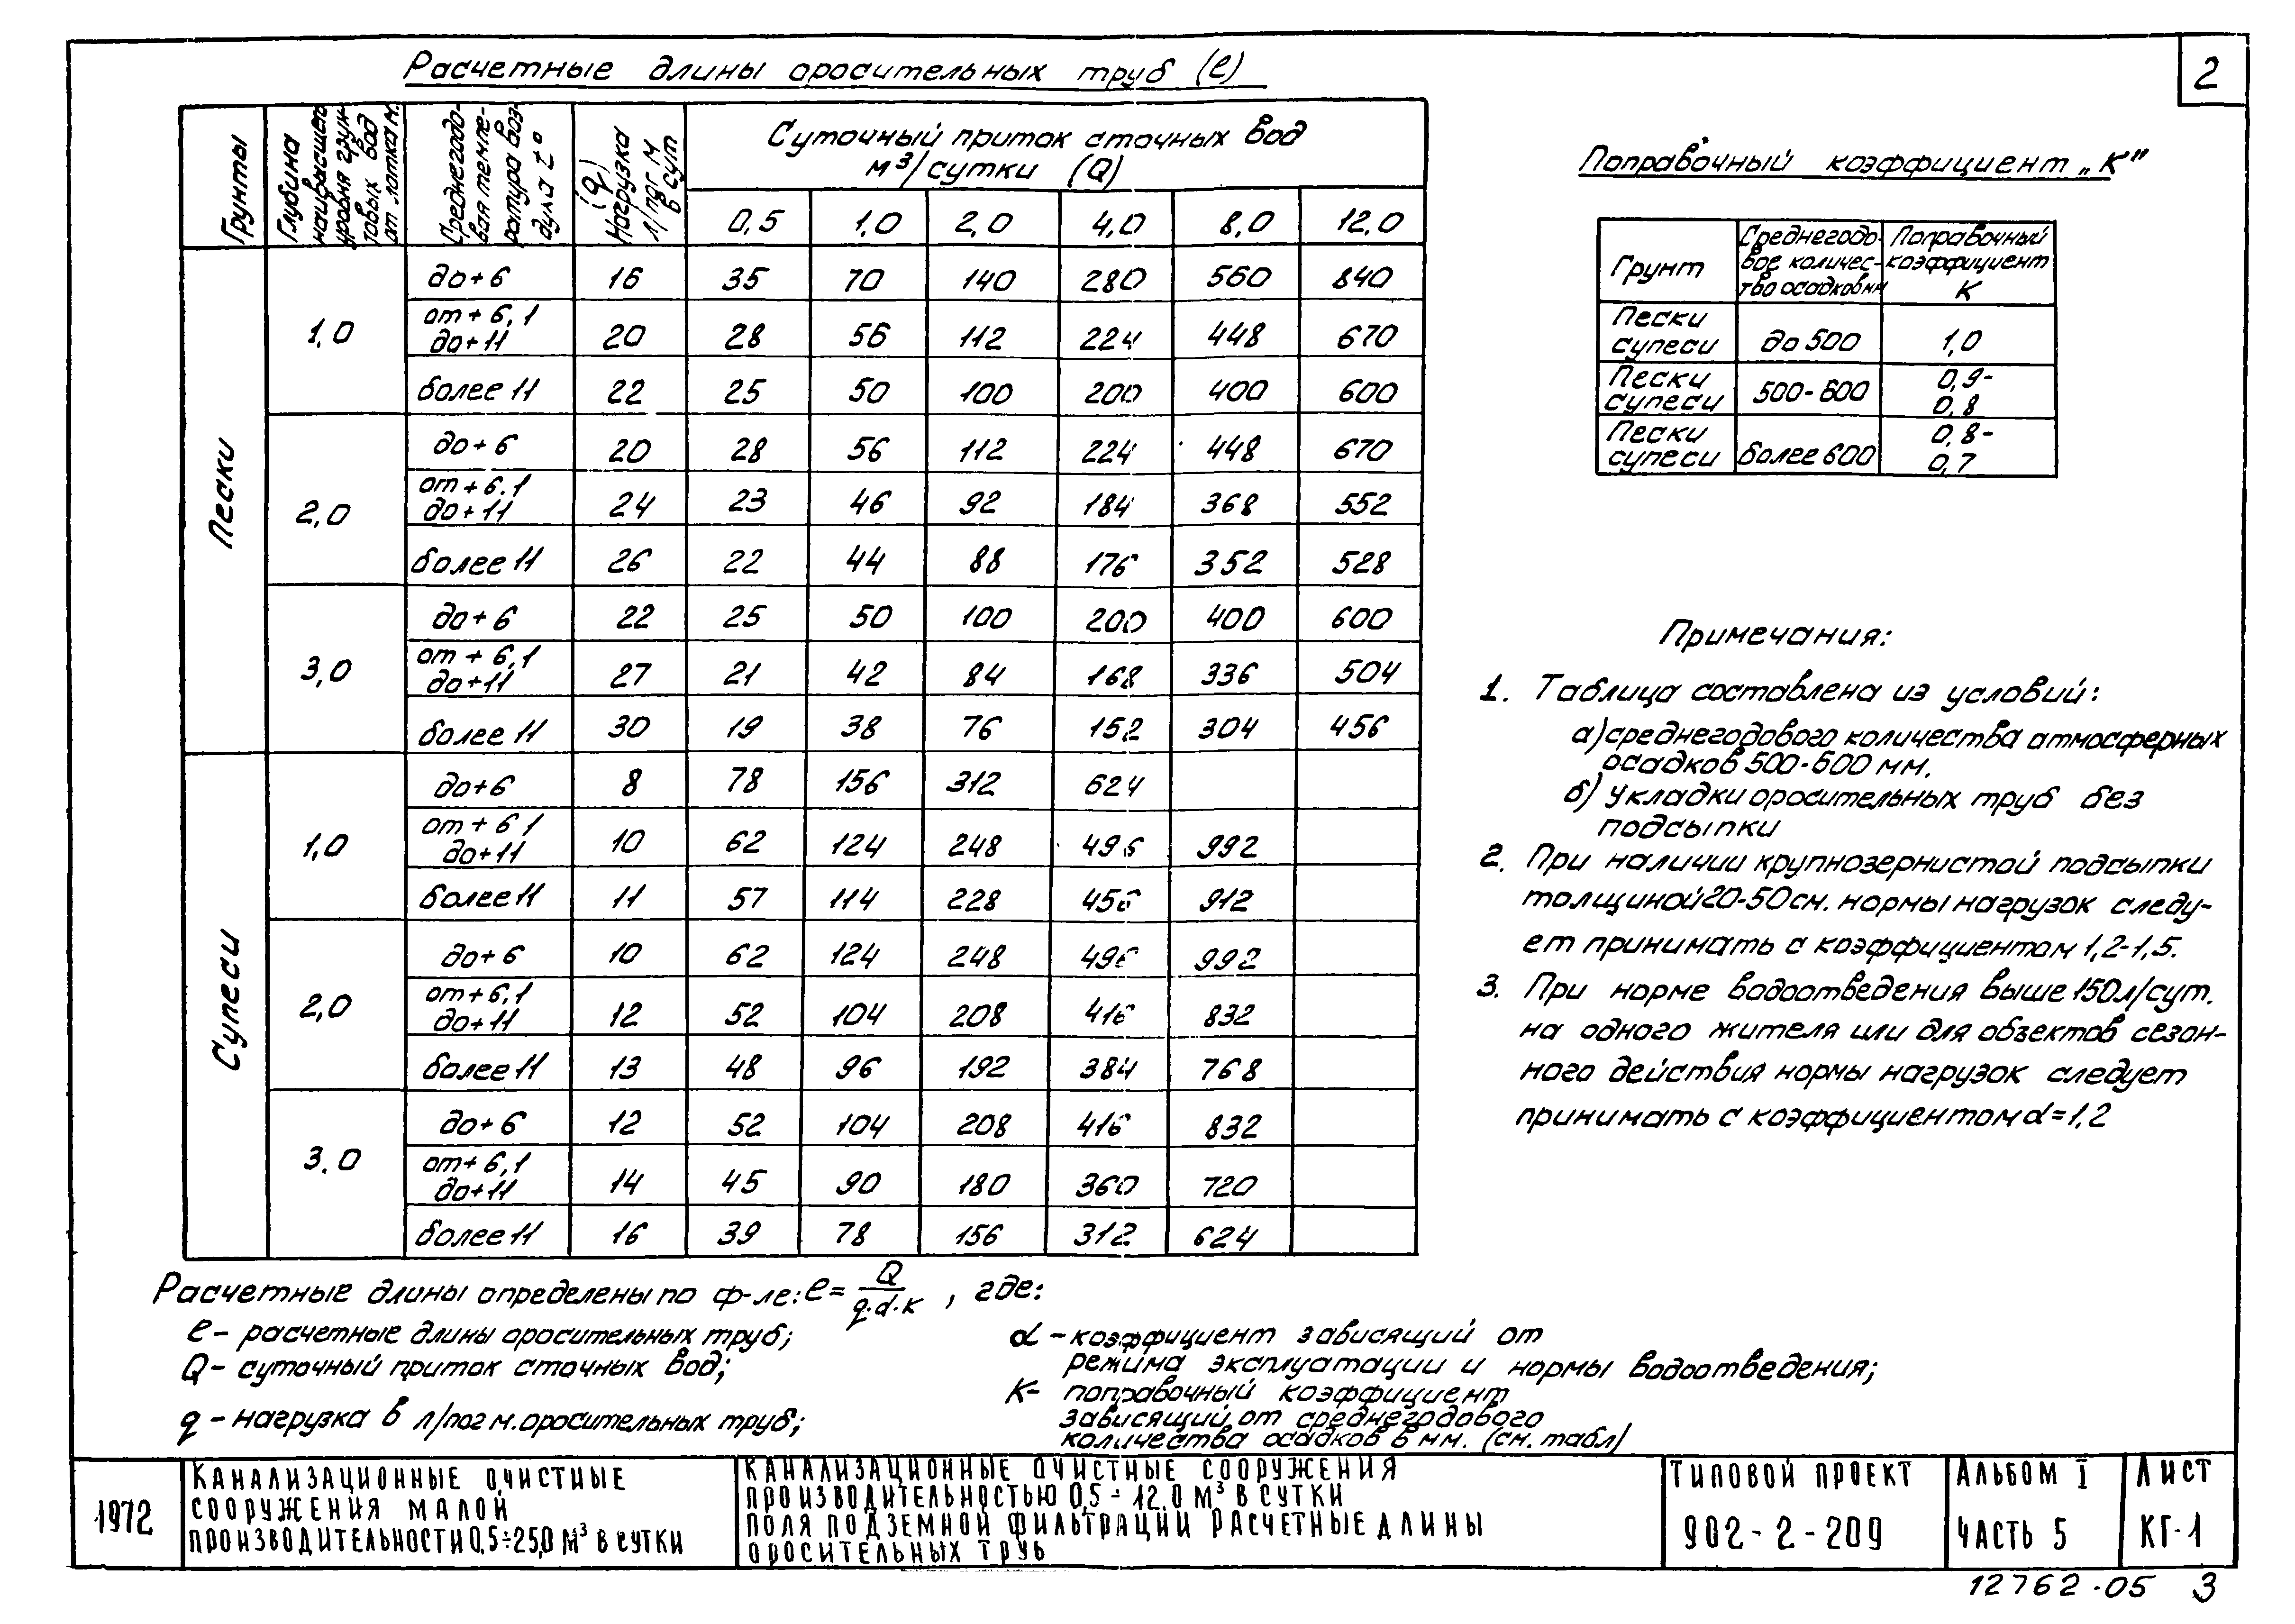 2
Расчетные длины оросительных труб (ℓ)
Грунты
Глубина
наивысшего
уровня грун-
товых вод
от лотка м.
Среднегодо-
вая темпе-
ратура воз-
духа t°
(q)
Нагрузка
л/пог м
в сут
Суточный приток сточных вод
м³/сутки (Q)
0,5 1,0 2,0 4,0 8,0 12,0
Пески
1,0
до+6 16 35 70 140 280 560 840
от+6,1
до+11 20 28 56 112 224 448 670
более 11 22 25 50 100 200 400 600
2,0
до+6 20 28 56 112 224 448 670
от+6.1
до+11 24 23 46 92 184 368 552
более 11 26 22 44 88 176 352 528
3,0
до+6 22 25 50 100 200 400 600
от+6,1
до+11 27 21 42 84 168 336 504
более 11 30 19 38 76 152 304 456
Супеси
1,0
до+6 8 78 156 312 624
от+6 1
до+11 10 62 124 248 496 992
более 11 11 57 114 228 456 912
2,0
до+6 10 62 124 248 496 992
от+6,1
до+11 12 52 104 208 416 832
более 11 13 48 96 192 384 768
3.0
до+6 12 52 104 208 416 832
от+6,1
до+11 14 45 90 180 360 720
более 11 16 39 78 156 312 624
Поправочный коэффициент „К"
Грунт
Среднегодо-
вое количес-
тво осадков мм
Поправочный
коэффициент
К
Пески
супеси до 500 1,0
Пески
супеси 500-600 0,9-
0,8
Пески
супеси более 600 0,8-
0,7
Примечания:
1. Таблица составлена из условий:
а) среднегодового количества атмосферных
осадков 500-600 мм.
б) укладки оросительных труб без
подсыпки
2. При наличии крупнозернистой подсыпки
толщиной 20-50 см. нормы нагрузок следу-
ет принимать с коэффициентом 1,2-1,5.
3. При норме водоотведения выше 150 л/сут.
на одного жителя или для объектов сезон-
ного действия нормы нагрузок следует
принимать с коэффициентом α=1,2
Расчетные длины определены по ф-ле: ℓ= Q / q·α·к , где:
ℓ- расчетные длины оросительных труб;
Q- суточный приток сточных вод;
q- нагрузка в л/пог м. оросительных труб;
α - коэффициент зависящий от
режима эксплуатации и нормы водоотведения;
К- поправочный коэффициент
зависящий от среднегодового
количества осадков в мм. (см. табл)
1972
КАНАЛИЗАЦИОННЫЕ ОЧИСТНЫЕ
СООРУЖЕНИЯ МАЛОЙ
ПРОИЗВОДИТЕЛЬНОСТИ 0,5÷25,0 М³ В СУТКИ
КАНАЛИЗАЦИОННЫЕ ОЧИСТНЫЕ СООРУЖЕНИЯ
ПРОИЗВОДИТЕЛЬНОСТЬЮ 0,5÷12.0 М³ В СУТКИ
ПОЛЯ ПОДЗЕМНОЙ ФИЛЬТРАЦИИ РАСЧЕТНЫЕ ДЛИНЫ
ОРОСИТЕЛЬНЫХ ТРУБ
ТИПОВОЙ ПРОЕКТ
902-2-209
АЛЬБОМ I
ЧАСТЬ 5
ЛИСТ
КГ-1
12762-05 3